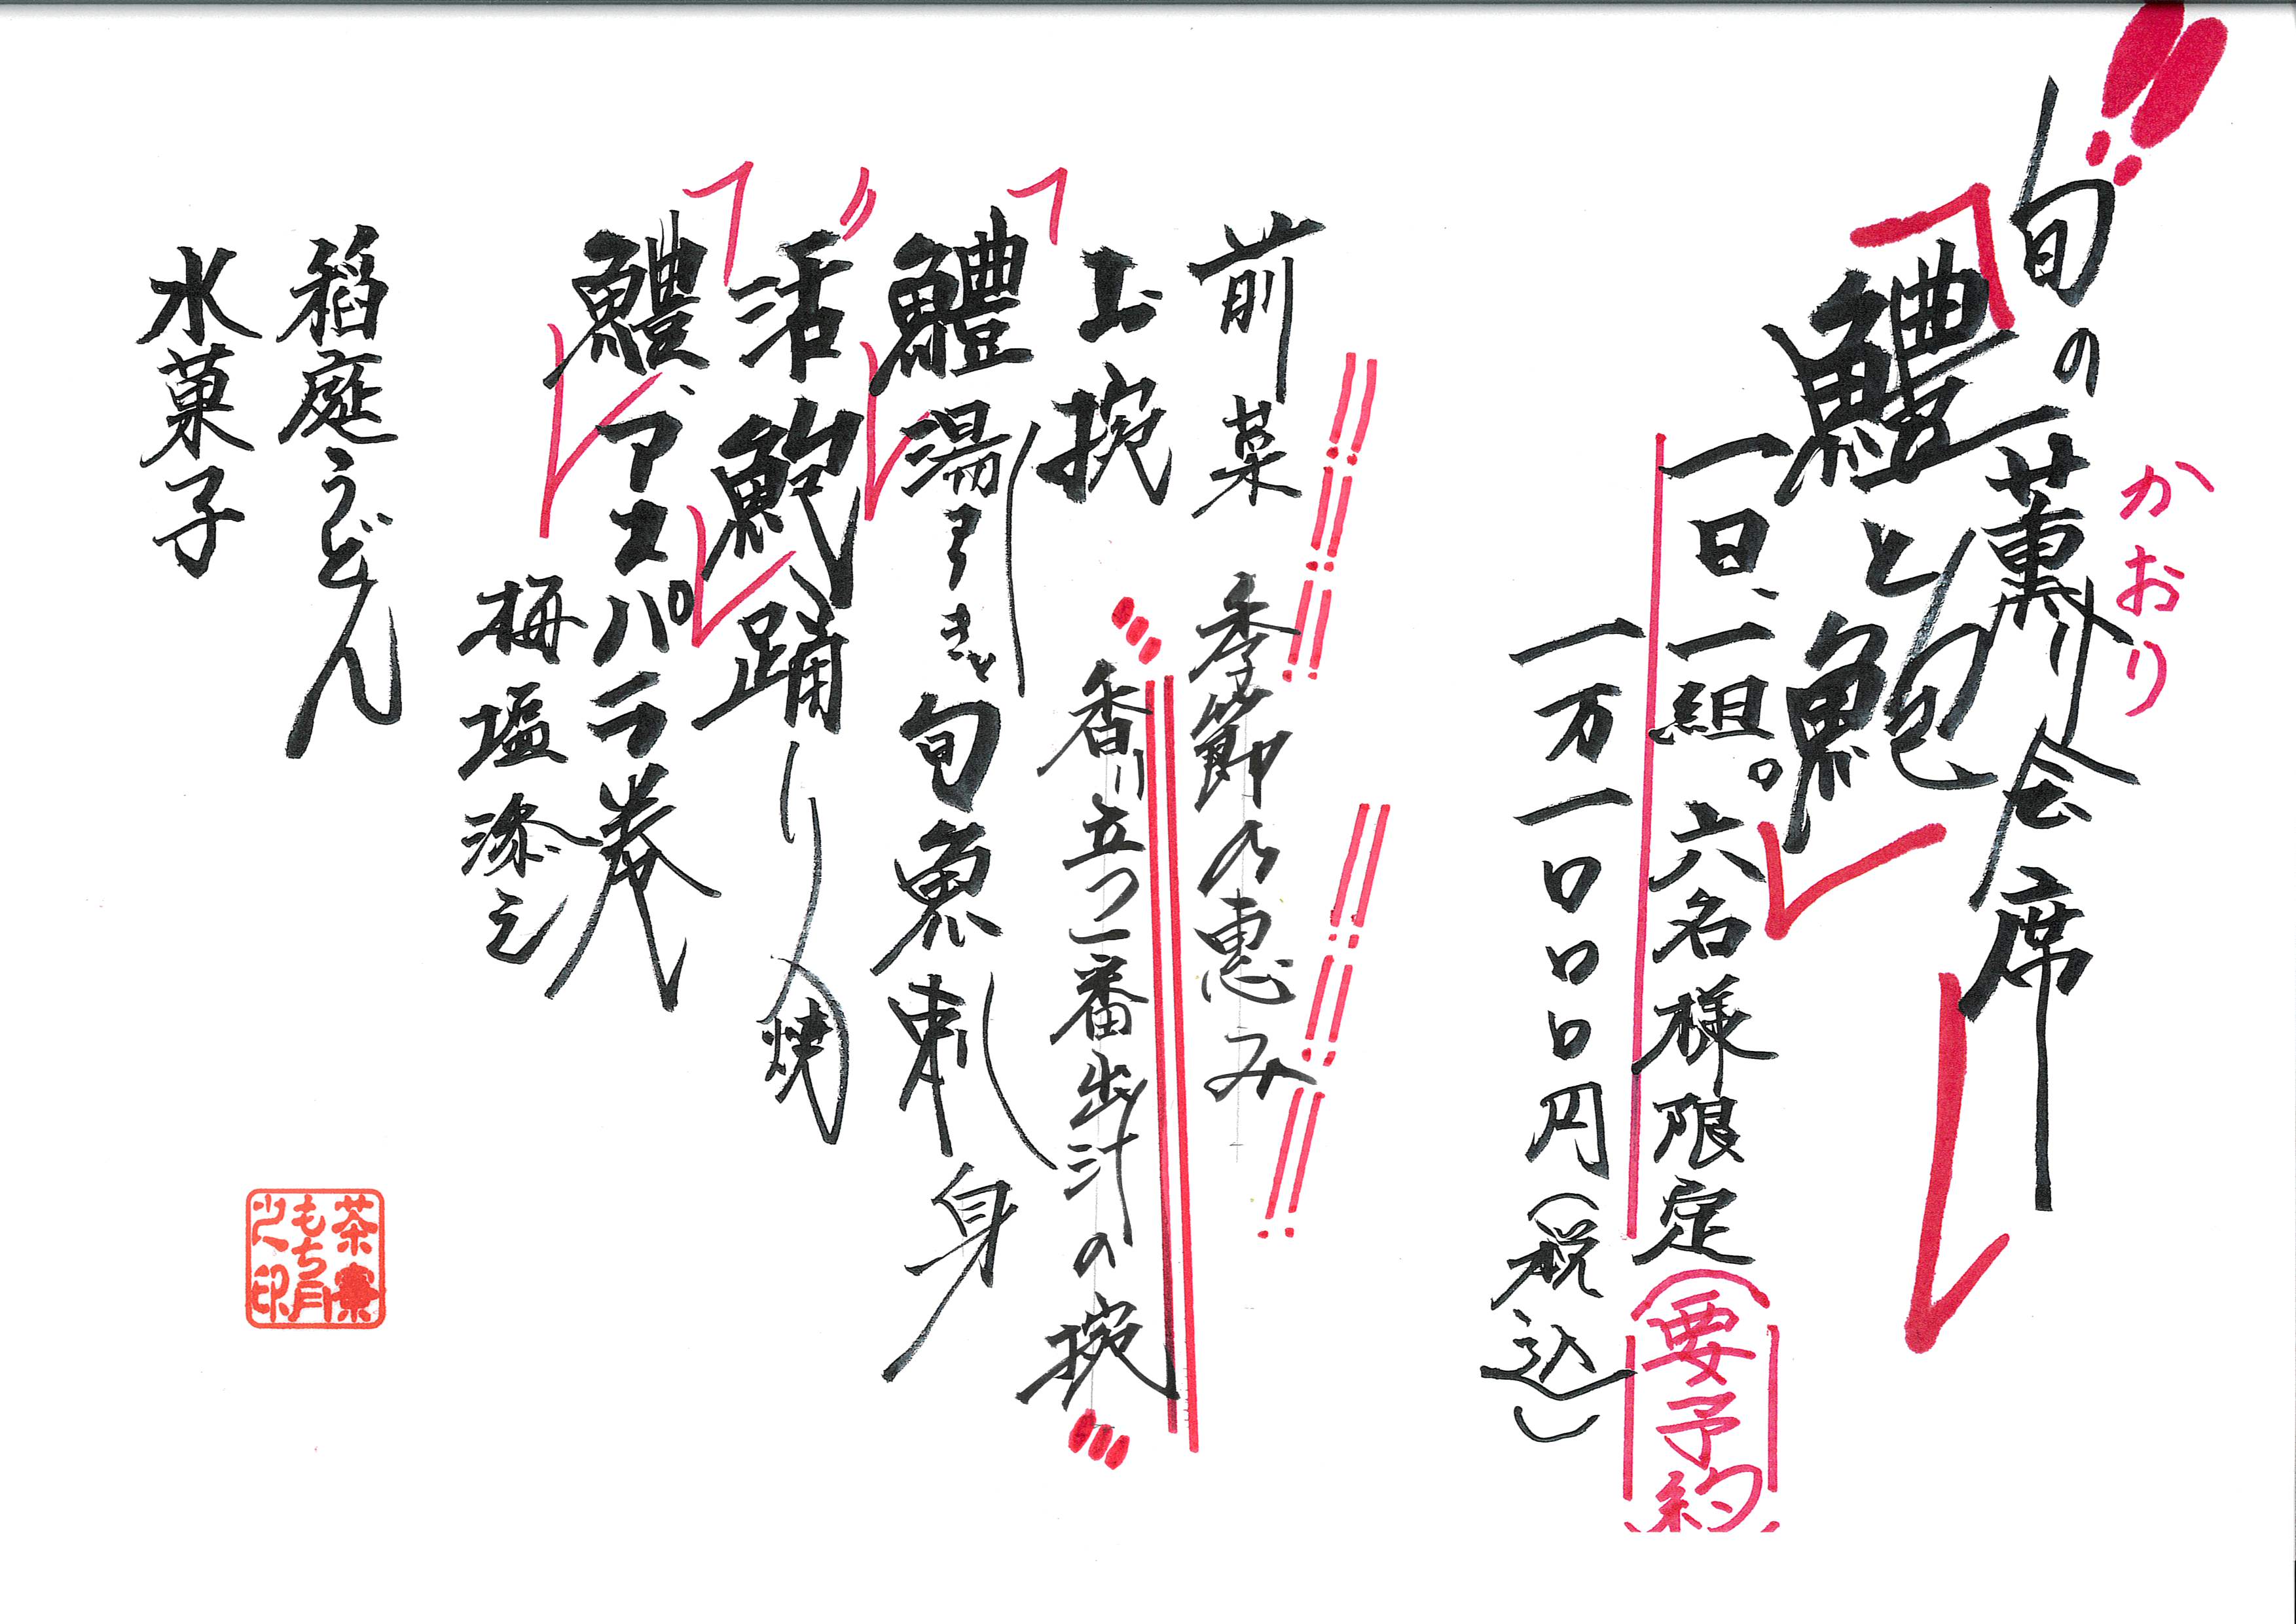 旬の薫り会席
かおり
「鱧と鮑」
一日、一組。六名様限定(要予約)
一万一〇〇〇円(税込)
前菜 季節の恵み
お椀 香り立つ一番出汁の椀
「鱧」湯引きと旬魚刺身
"活鮑"踊り焼
「鱧」、アスパラ巻
梅塩添え
稲庭うどん
水菓子
茶寮
もち月
之印